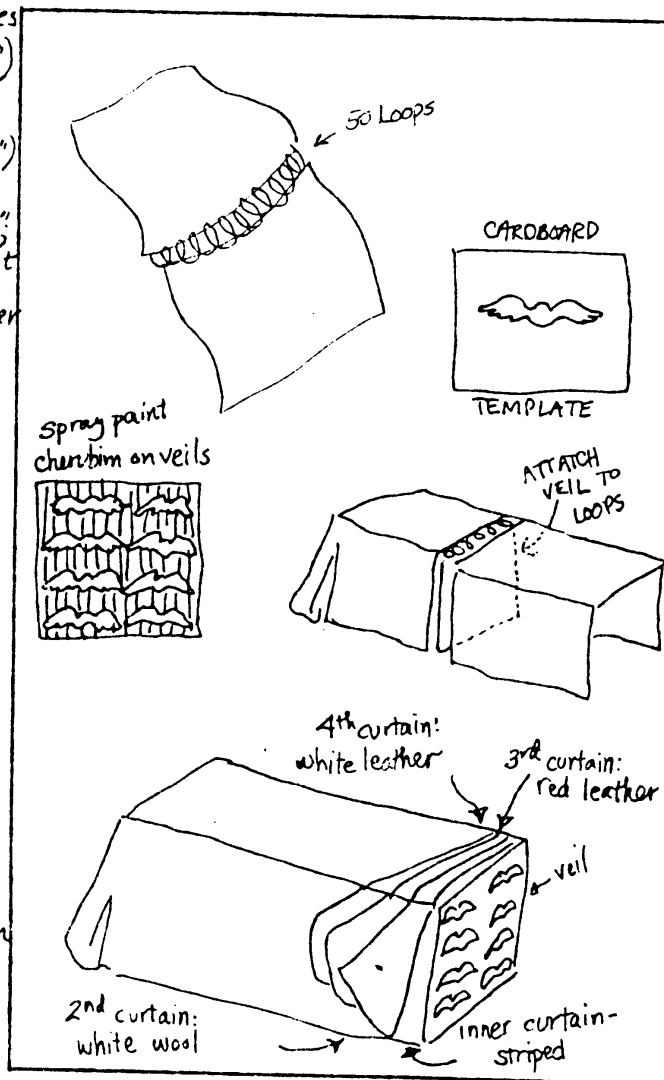 50 LOOPS
CARDBOARD
TEMPLATE
Spray paint
cherubim on veils
ATTATCH
VEIL TO
LOOPS
4th curtain:
white leather
3rd curtain:
red leather
veil
2nd curtain:
white wool
inner curtain-
striped